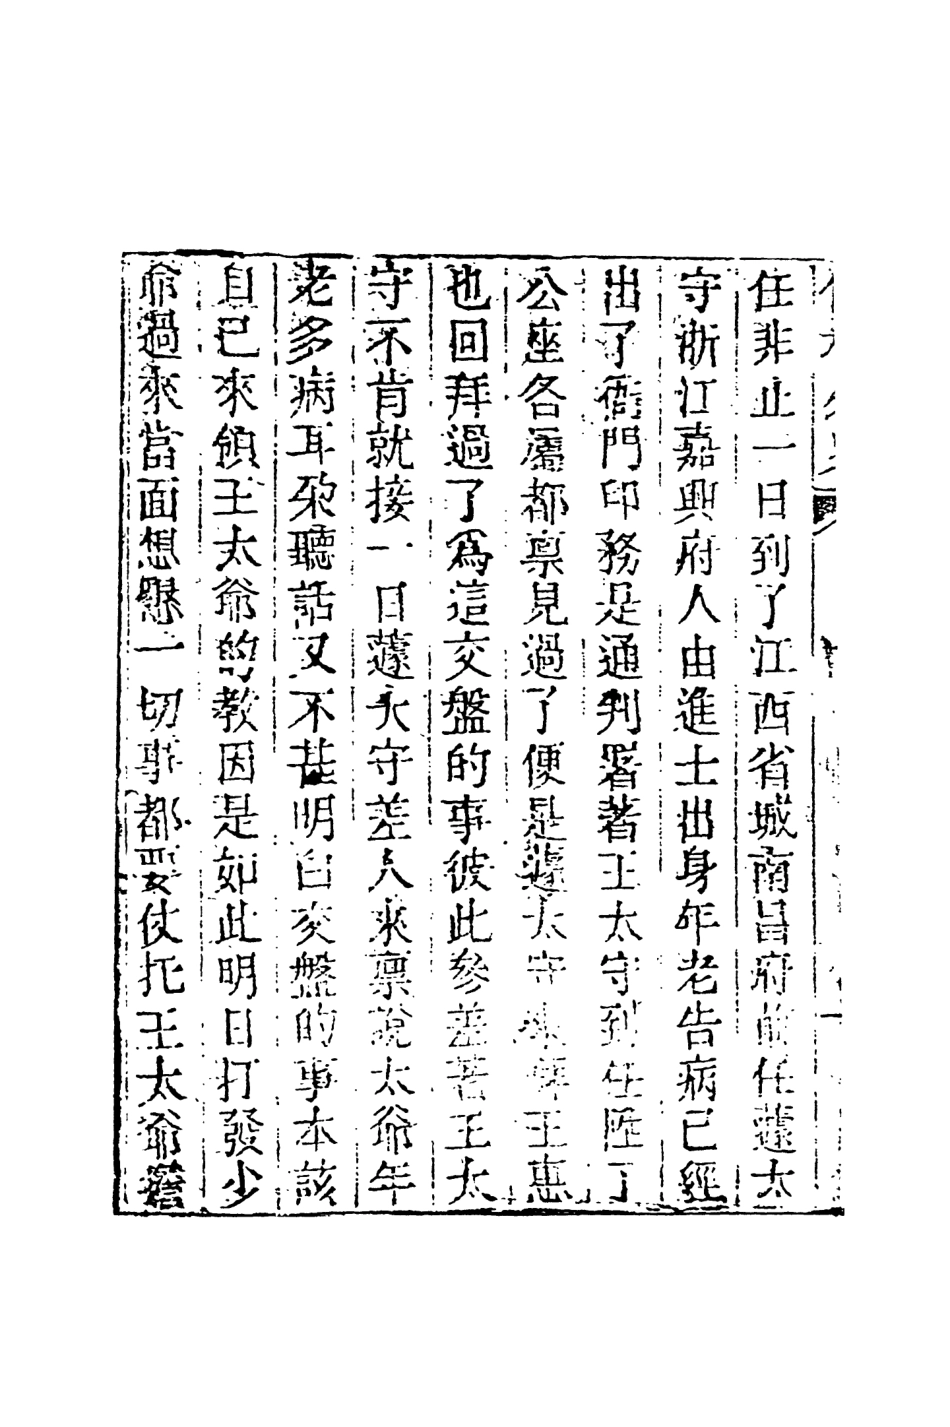 任非止一日到了江西省城南昌府前任蘧太
守浙江嘉興府人由進士出身年老告病已經
出了衙門印務是通判署著王太守到任陞了
公座各屬都禀見過了便是蘧太守來拜王惠
也回拜過了爲這交盤的事彼此參差著王太
守不肯就接一日蘧太守差人來禀說太爺年
老多病耳朶聽話又不甚明白交盤的事本該
自己來領王太爺的教因是如此明日打發少
爺過來當面想懇一切事都要仗托王太爺擔